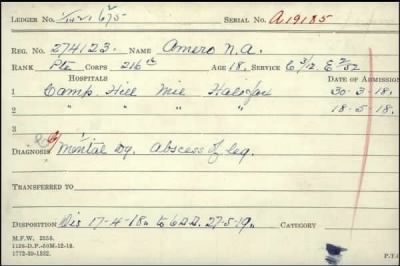 LEDGER NO. 675 SERIAL NO. A19185
REG. NO. 274123. NAME Amero N.A.
RANK Pte CORPS 216th AGE 18. SERVICE C 3/12. E 2/52
HOSPITALS DATE OF ADMISSION
1 Camp Hill Mil Halifax 30-3-18.
2 " " " " 18-5-18.
3
DIAGNOSIS 1 Mental Dg. Abscess of leg.
TRANSFERRED TO
DISPOSITION Dis 17-4-18. to C.D.D. 27-5-19. CATEGORY
M.F.W. 2558.
1128-D.P.-50M-12-18.
1772-39-1532.
P.T.